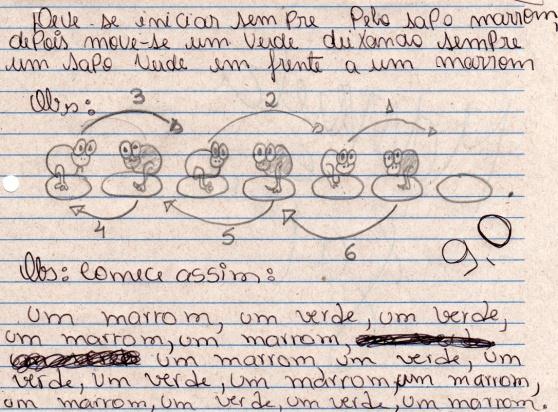 Deve-se iniciar sempre Pelo sapo marrom,
depois move-se um verde deixando sempre
um sapo verde em frente a um marrom
Obs:
3 2 1
4 5 6
9,0
Obs: comece assim:
um marrom, um verde, um verde,
um marrom, um marrom,
um marrom um verde, um
verde, um verde, um marrom, um marrom,
um marrom, um verde, um verde, um marrom.